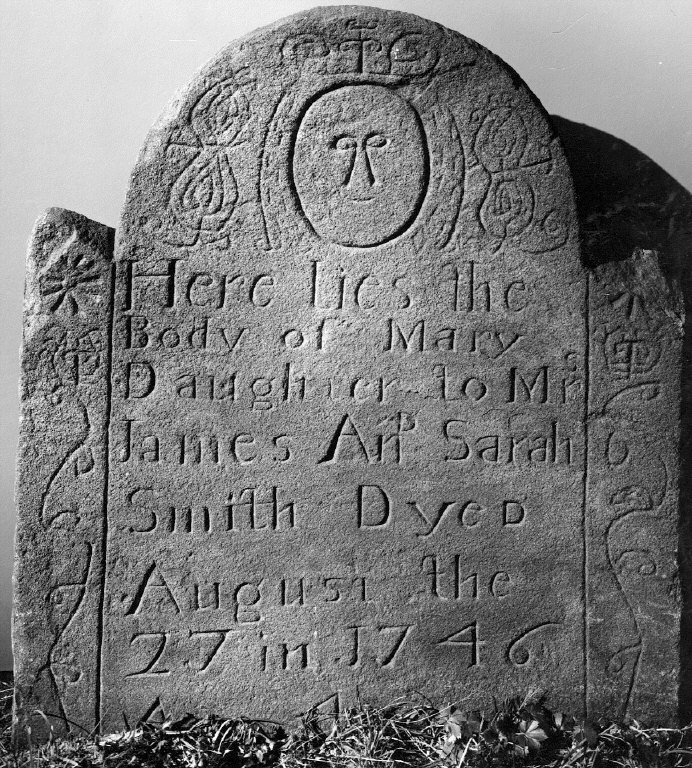 Here lies the
Body of Mary
Daughter to Mrs
James And Sarah
Smith Dyed
August the
27 in 1746